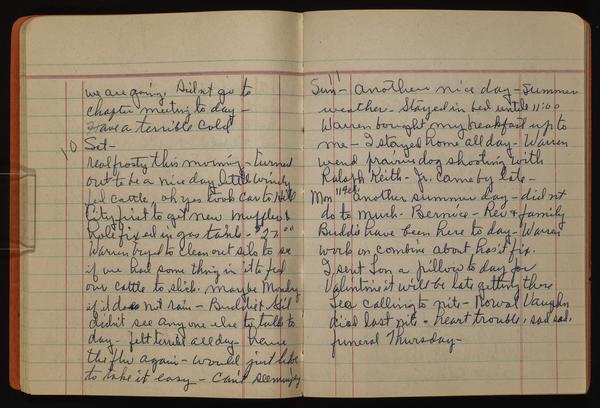 we are going. Didn't go to
chapter meeting to day -
Have a terrible cold
10 Sat -
real frosty this morning - turned
out to be a nice day little windy
fed cattle, oh yes took car to Hill
City first to get new muffler &
hole fixed in gas tank - $27.00
Warren tryed to clean out silo to se
if we had some thing in it to fed
our cattle to slick. maybe Monday
if it does not rain - Buddie &
didn't see any one else to talk to
day - felt all day - have
the flu again - would just like
to take it easy - can't seemingly
Sun 11 - another nice day - summer
weather. Stayed in bed until 11:00
Warren bought my breakfast up to
me - I stayed home all day - Warren
wend prairie dog shooting with
Ralaph Keith - Jr. came by late -
Mon another summer day - did nt
do to much. Bernice - Rex & family
Buddie have been here to day - Warren
work on combine about has it fix.
I sent Lon a pillow to day for
Valintine it will be late getting there
Lea calling to nite - Howard Vaughn
died last nite - heart trouble, sad sad.
funeral Thursday -